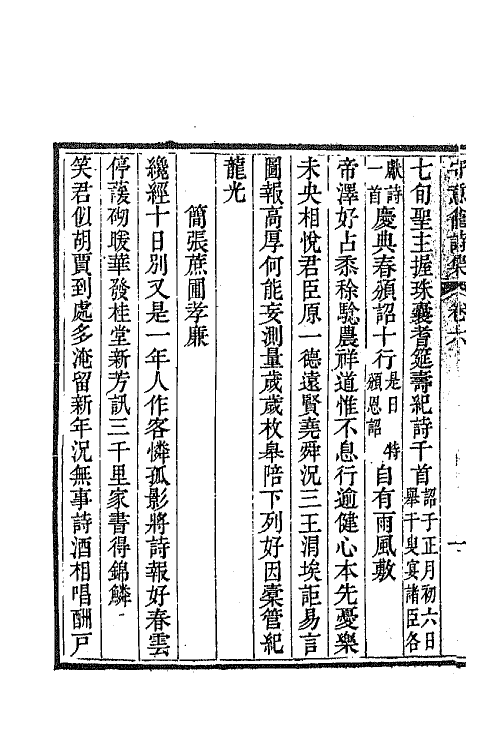 卷六
一
七旬聖主握珠囊耆筵壽紀詩千首詔于正月初六日
舉千叟宴諸臣各
獻詩
一首慶典春頒詔十行是日
頒恩詔特自有雨風敷
帝澤好占黍稌驗農祥道惟不息行逾健心本先憂樂
未央相悅君臣原一德遠賢堯舜況三王涓埃詎易言
圖報高厚何能妄測量歲歲枚皋陪下列好因橐管紀
龍光
簡張蔗圃孝廉
纔經十日別又是一年人作客憐孤影將詩報好春雲
停護砌暖華發桂堂新芳訊三千里家書得錦鱗
笑君似胡賈到處多淹留新年況無事詩酒相唱酬戸